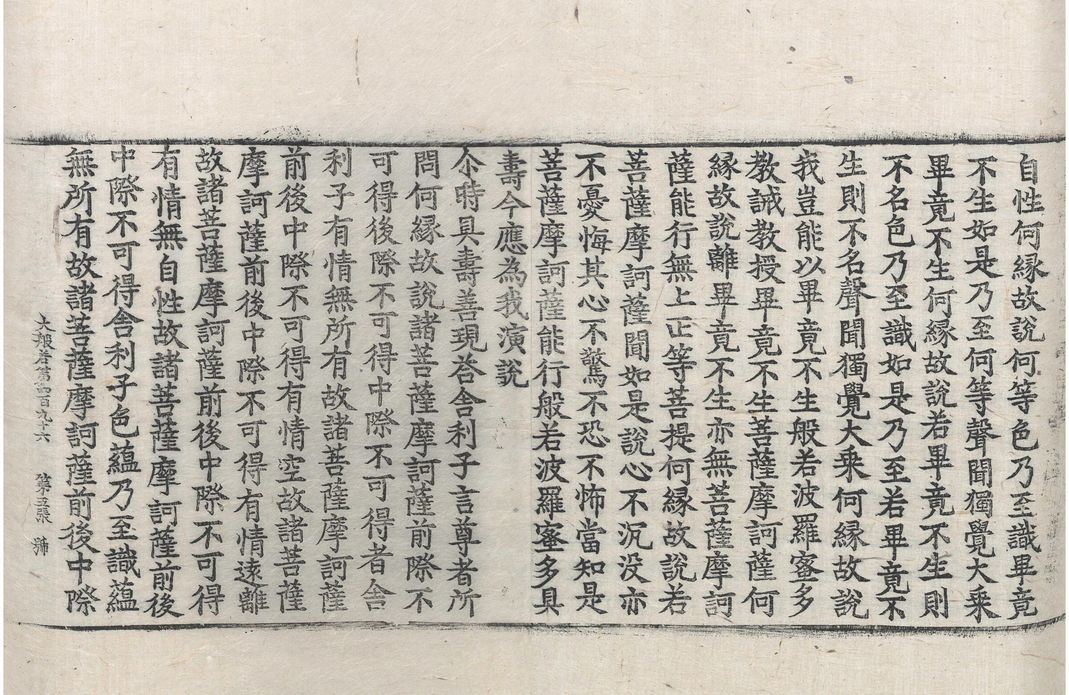 自性何縁故說何等色乃至識畢竟
不生如是乃至何等聲聞獨覺大乘
畢竟不生何縁故說若畢竟不生則
不名色乃至識如是乃至若畢竟不
生則不名聲聞獨覺大乘何縁故說
我豈能以畢竟不生般若波羅蜜多
教誡教授畢竟不生菩薩摩訶薩何
縁故說離畢竟不生亦無菩薩摩訶
薩能行無上正等菩提何縁故說若
菩薩摩訶薩聞如是說心不沉没亦
不憂悔其心不驚不恐不怖當知是
菩薩摩訶薩能行般若波羅蜜多具
壽今應為我演說
尒時具壽善現荅舍利子言尊者所
問何縁故說諸菩薩摩訶薩前際不
可得後際不可得中際不可得者舍
利子有情無所有故諸菩薩摩訶薩
前後中際不可得有情空故諸菩薩
摩訶薩前後中際不可得有情遠離
故諸菩薩摩訶薩前後中際不可得
有情無自性故諸菩薩摩訶薩前後
中際不可得舍利子色蘊乃至識蘊
無所有故諸菩薩摩訶薩前後中際
大般若第四百九十六 第五張